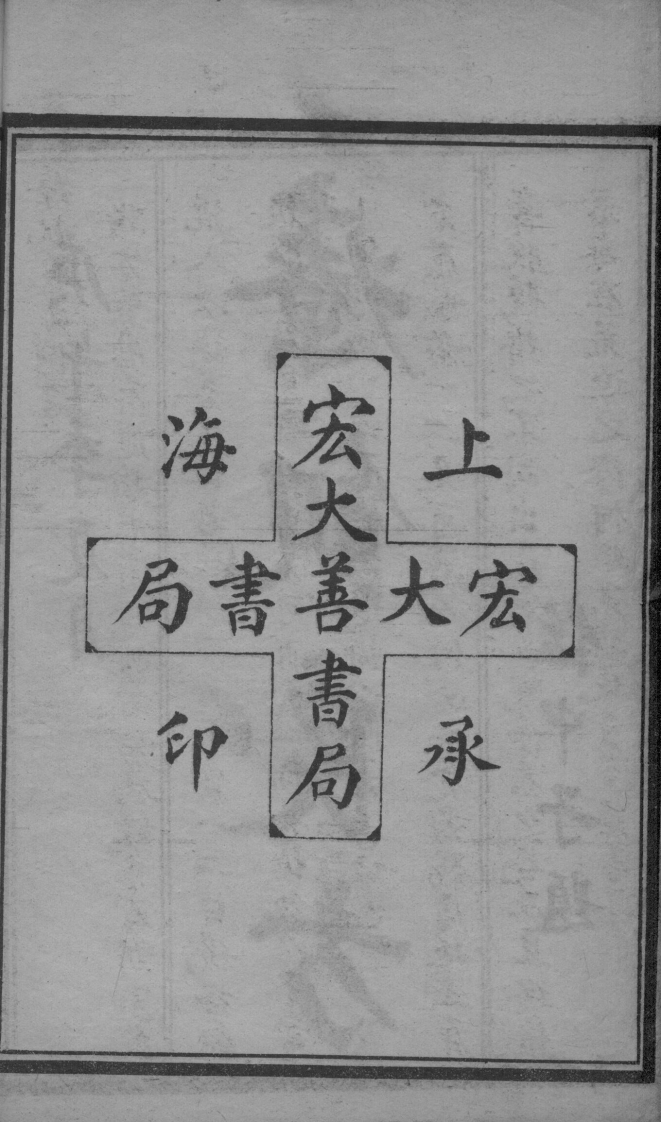 上海
宏大善書局
宏大善書局
承印